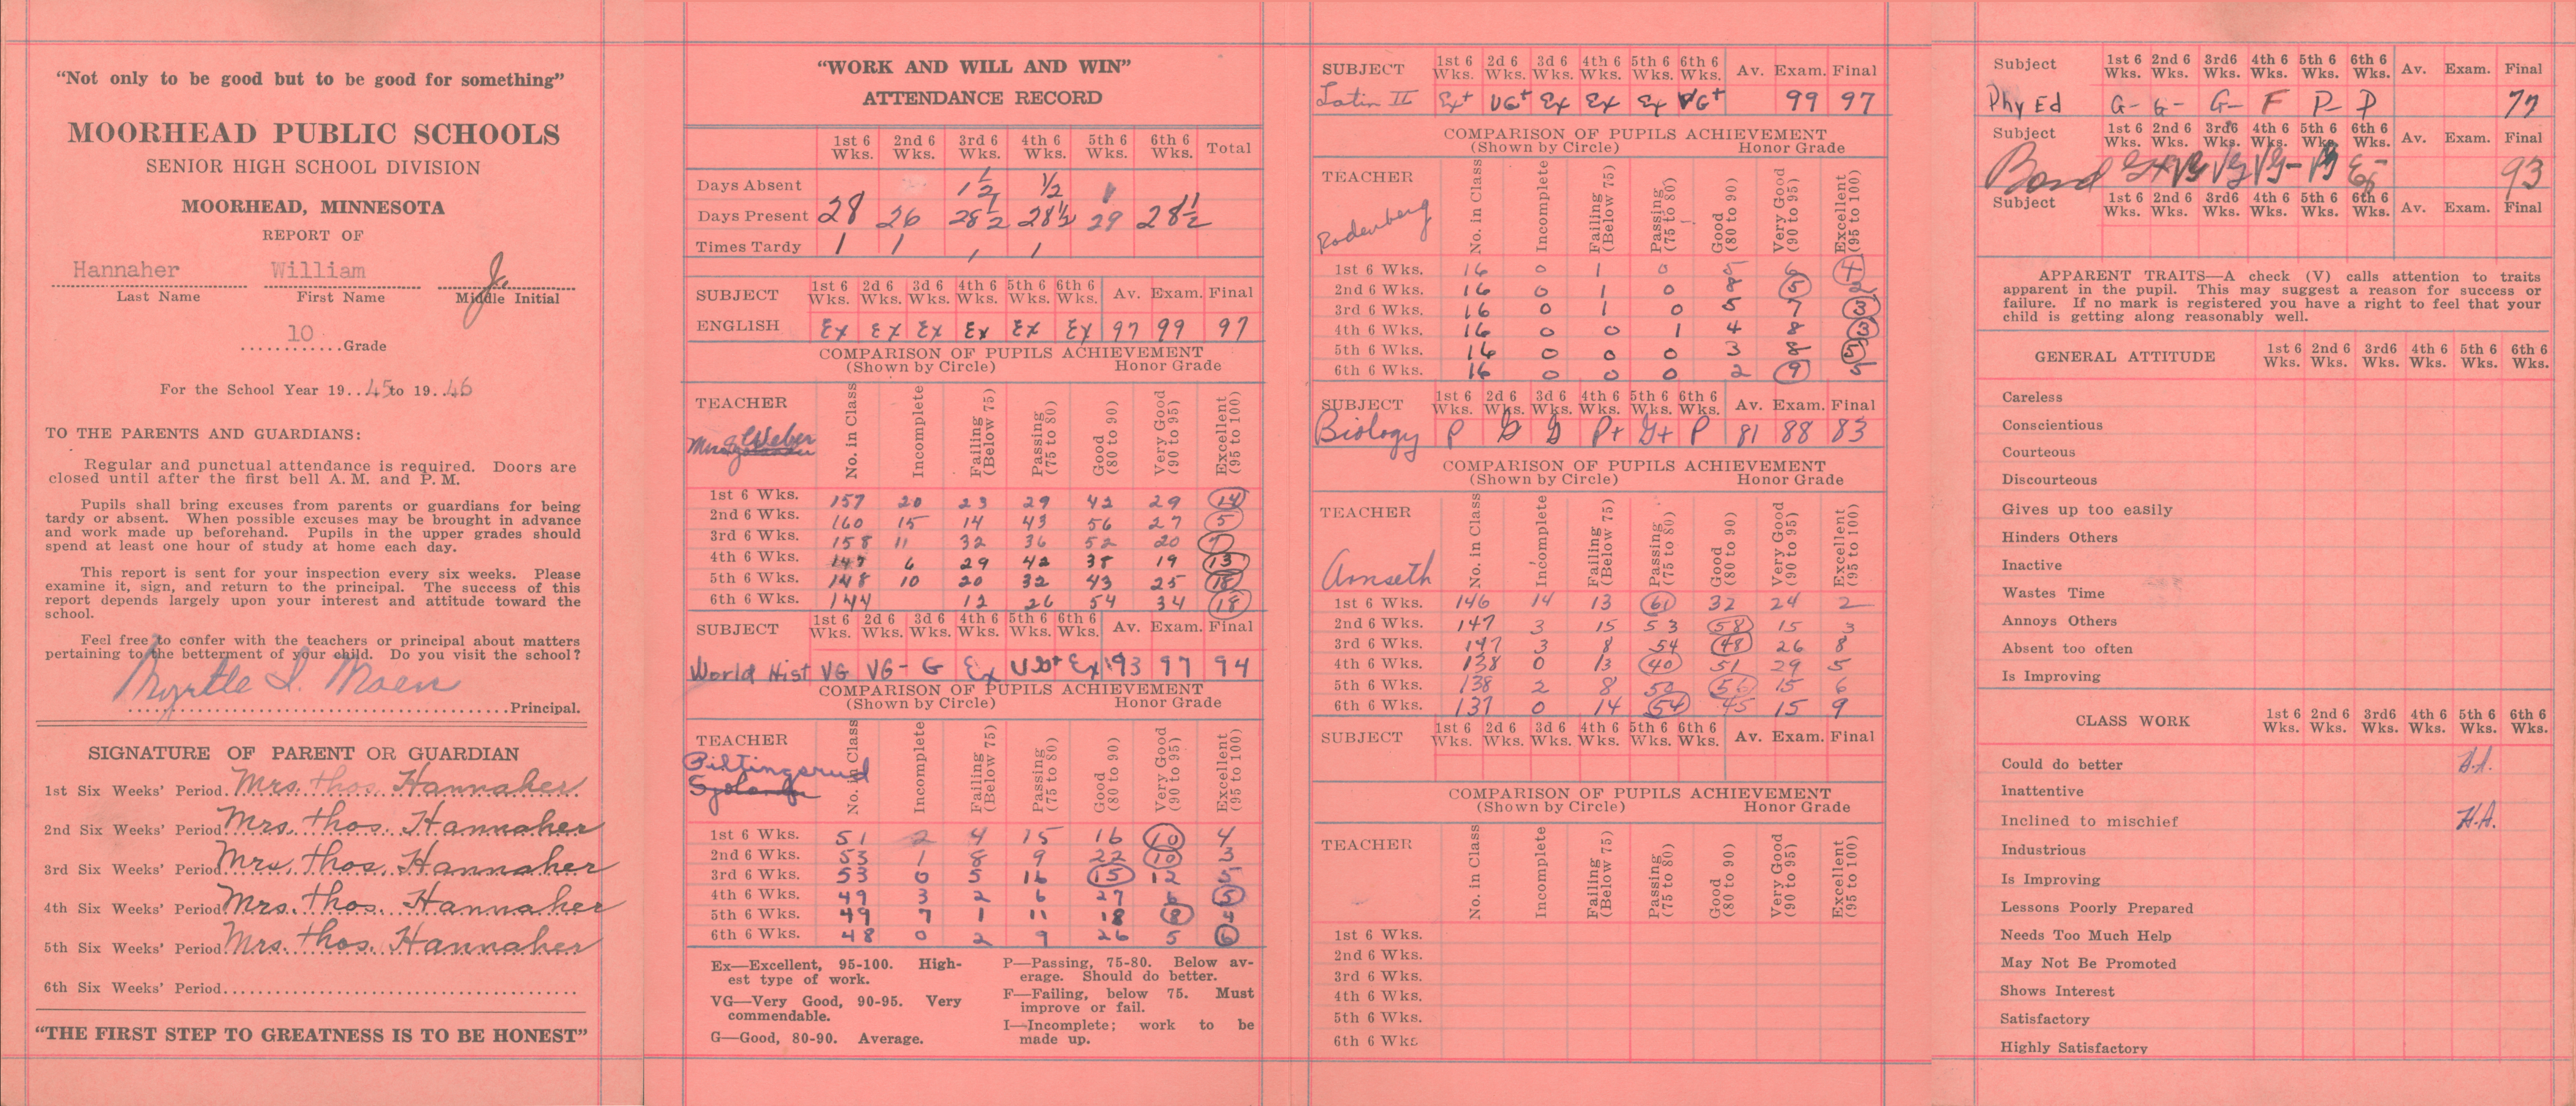 "Not only to be good but to be good for something"
MOORHEAD PUBLIC SCHOOLS
SENIOR HIGH SCHOOL DIVISION
MOORHEAD, MINNESOTA
REPORT OF
Hannaher William Jr.
Last Name First Name Middle Initial
10
Grade
For the School Year 19..45 to 19..46
TO THE PARENTS AND GUARDIANS:
Regular and punctual attendance is required. Doors are
closed until after the first bell A. M. and P. M.
Pupils shall bring excuses from parents or guardians for being
tardy or absent. When possible excuses may be brought in advance
and work made up beforehand. Pupils in the upper grades should
spend at least one hour of study at home each day.
This report is sent for your inspection every six weeks. Please
examine it, sign, and return to the principal. The success of this
report depends largely upon your interest and attitude toward the
school.
Feel free to confer with the teachers or principal about matters
pertaining to the betterment of your child. Do you visit the school?
Myrtle I. Moen
Principal.
SIGNATURE OF PARENT OR GUARDIAN
1st Six Weeks' Period. Mrs. Thos. Hannaher
2nd Six Weeks' Period. Mrs. Thos. Hannaher
3rd Six Weeks' Period Mrs. Thos. Hannaher
4th Six Weeks' Period Mrs. Thos. Hannaher
5th Six Weeks' Period. Mrs. Thos. Hannaher
6th Six Weeks' Period
"THE FIRST STEP TO GREATNESS IS TO BE HONEST"
"WORK AND WILL AND WIN"
ATTENDANCE RECORD
1st 6 Wks. 2nd 6 Wks. 3rd 6 Wks. 4th 6 Wks. 5th 6 Wks. 6th 6 Wks. Total
Days Absent 1 1/2 1/2
Days Present 28 26 28 1/2 28 1/2 29 28 1/2
Times Tardy 1 1 1 1
SUBJECT 1st 6 Wks. 2d 6 Wks. 3d 6 Wks. 4th 6 Wks. 5th 6 Wks. 6th 6 Wks. Av. Exam. Final
ENGLISH Ex Ex Ex Ex Ex Ex 97 99 97
COMPARISON OF PUPILS ACHIEVEMENT
(Shown by Circle) Honor Grade
TEACHER No. in Class Incomplete Failing (Below 75) Passing (75 to 80) Good (80 to 90) Very Good (90 to 95) Excellent (95 to 100)
Weber
1st 6 Wks. 157 20 23 29 42 29 14
2nd 6 Wks. 160 15 14 43 56 27 5
3rd 6 Wks. 158 11 32 36 52 20 7
4th 6 Wks. 147 6 29 42 38 19 13
5th 6 Wks. 148 10 20 32 43 25 18
6th 6 Wks. 144 12 26 54 34 18
SUBJECT 1st 6 Wks. 2d 6 Wks. 3d 6 Wks. 4th 6 Wks. 5th 6 Wks. 6th 6 Wks. Av. Exam. Final
World Hist VG VG- G Ex VG+ Ex 93 97 94
COMPARISON OF PUPILS ACHIEVEMENT
(Shown by Circle) Honor Grade
TEACHER No. in Class Incomplete Failing (Below 75) Passing (75 to 80) Good (80 to 90) Very Good (90 to 95) Excellent (95 to 100)
Biltingsrud
1st 6 Wks. 51 2 4 15 16 10 4
2nd 6 Wks. 53 1 8 9 22 10 3
3rd 6 Wks. 53 0 5 16 15 12 5
4th 6 Wks. 49 3 2 6 27 6 5
5th 6 Wks. 49 7 1 11 18 8 4
6th 6 Wks. 48 0 2 9 26 5 6
Ex—Excellent, 95-100. Highest type of work.
VG—Very Good, 90-95. Very commendable.
G—Good, 80-90. Average.
P—Passing, 75-80. Below average. Should do better.
F—Failing, below 75. Must improve or fail.
I—Incomplete; work to be made up.
SUBJECT 1st 6 Wks. 2d 6 Wks. 3d 6 Wks. 4th 6 Wks. 5th 6 Wks. 6th 6 Wks. Av. Exam. Final
Latin II Ex+ VG+ Ex Ex Ex VG+ 99 97
COMPARISON OF PUPILS ACHIEVEMENT
(Shown by Circle) Honor Grade
TEACHER No. in Class Incomplete Failing (Below 75) Passing (75 to 80) Good (80 to 90) Very Good (90 to 95) Excellent (95 to 100)
Rodenberg
1st 6 Wks. 16 0 1 0 5 6 4
2nd 6 Wks. 16 0 1 0 8 5 2
3rd 6 Wks. 16 0 1 0 5 7 3
4th 6 Wks. 16 0 0 1 4 8 3
5th 6 Wks. 16 0 0 0 3 8 5
6th 6 Wks. 16 0 0 0 2 9 5
SUBJECT 1st 6 Wks. 2d 6 Wks. 3d 6 Wks. 4th 6 Wks. 5th 6 Wks. 6th 6 Wks. Av. Exam. Final
Biology P G G P+ G+ P 81 88 83
COMPARISON OF PUPILS ACHIEVEMENT
(Shown by Circle) Honor Grade
TEACHER No. in Class Incomplete Failing (Below 75) Passing (75 to 80) Good (80 to 90) Very Good (90 to 95) Excellent (95 to 100)
Aamseth
1st 6 Wks. 146 14 13 61 32 24 2
2nd 6 Wks. 147 3 15 53 58 15 3
3rd 6 Wks. 147 3 8 54 48 26 8
4th 6 Wks. 138 0 13 40 51 29 5
5th 6 Wks. 138 2 8 52 56 15 6
6th 6 Wks. 137 0 14 54 45 15 9
SUBJECT 1st 6 Wks. 2d 6 Wks. 3d 6 Wks. 4th 6 Wks. 5th 6 Wks. 6th 6 Wks. Av. Exam. Final
COMPARISON OF PUPILS ACHIEVEMENT
(Shown by Circle) Honor Grade
TEACHER No. in Class Incomplete Failing (Below 75) Passing (75 to 80) Good (80 to 90) Very Good (90 to 95) Excellent (95 to 100)
1st 6 Wks.
2nd 6 Wks.
3rd 6 Wks.
4th 6 Wks.
5th 6 Wks.
6th 6 Wks
Subject 1st 6 Wks. 2nd 6 Wks. 3rd6 Wks. 4th 6 Wks. 5th 6 Wks. 6th 6 Wks. Av. Exam. Final
Phy Ed G- G- G- F P- P 77
Subject 1st 6 Wks. 2nd 6 Wks. 3rd6 Wks. 4th 6 Wks. 5th 6 Wks. 6th 6 Wks. Av. Exam. Final
Band G+ Vg Vg Vg- Vg Ex- 93
Subject 1st 6 Wks. 2nd 6 Wks. 3rd6 Wks. 4th 6 Wks. 5th 6 Wks. 6th 6 Wks. Av. Exam. Final
APPARENT TRAITS—A check (V) calls attention to traits
apparent in the pupil. This may suggest a reason for success or
failure. If no mark is registered you have a right to feel that your
child is getting along reasonably well.
GENERAL ATTITUDE 1st 6 Wks. 2nd 6 Wks. 3rd6 Wks. 4th 6 Wks. 5th 6 Wks. 6th 6 Wks.
Careless
Conscientious
Courteous
Discourteous
Gives up too easily
Hinders Others
Inactive
Wastes Time
Annoys Others
Absent too often
Is Improving
CLASS WORK 1st 6 Wks. 2nd 6 Wks. 3rd6 Wks. 4th 6 Wks. 5th 6 Wks. 6th 6 Wks.
Could do better H.A.
Inattentive
Inclined to mischief H.A.
Industrious
Is Improving
Lessons Poorly Prepared
Needs Too Much Help
May Not Be Promoted
Shows Interest
Satisfactory
Highly Satisfactory